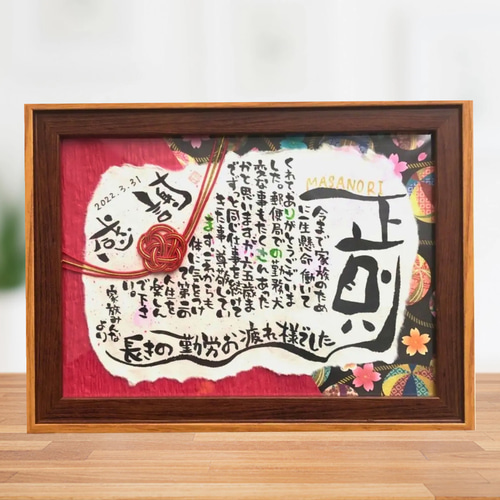 正則
MASANORI
今まで家族のため
に一生懸命働いて
くれてありがとうございま
した。郵便局での勤務大
変な事もたくさんあった
かと思いますが六五歳ま
でずっと同じ仕事を続けて
きた事尊敬してい
ます。これからも
体に気をつけ
て第二の
人生を
楽しん
で下さ
い。
家族みんな
より
長きの勤労お疲れ様でした
喜
感
2022.3.31